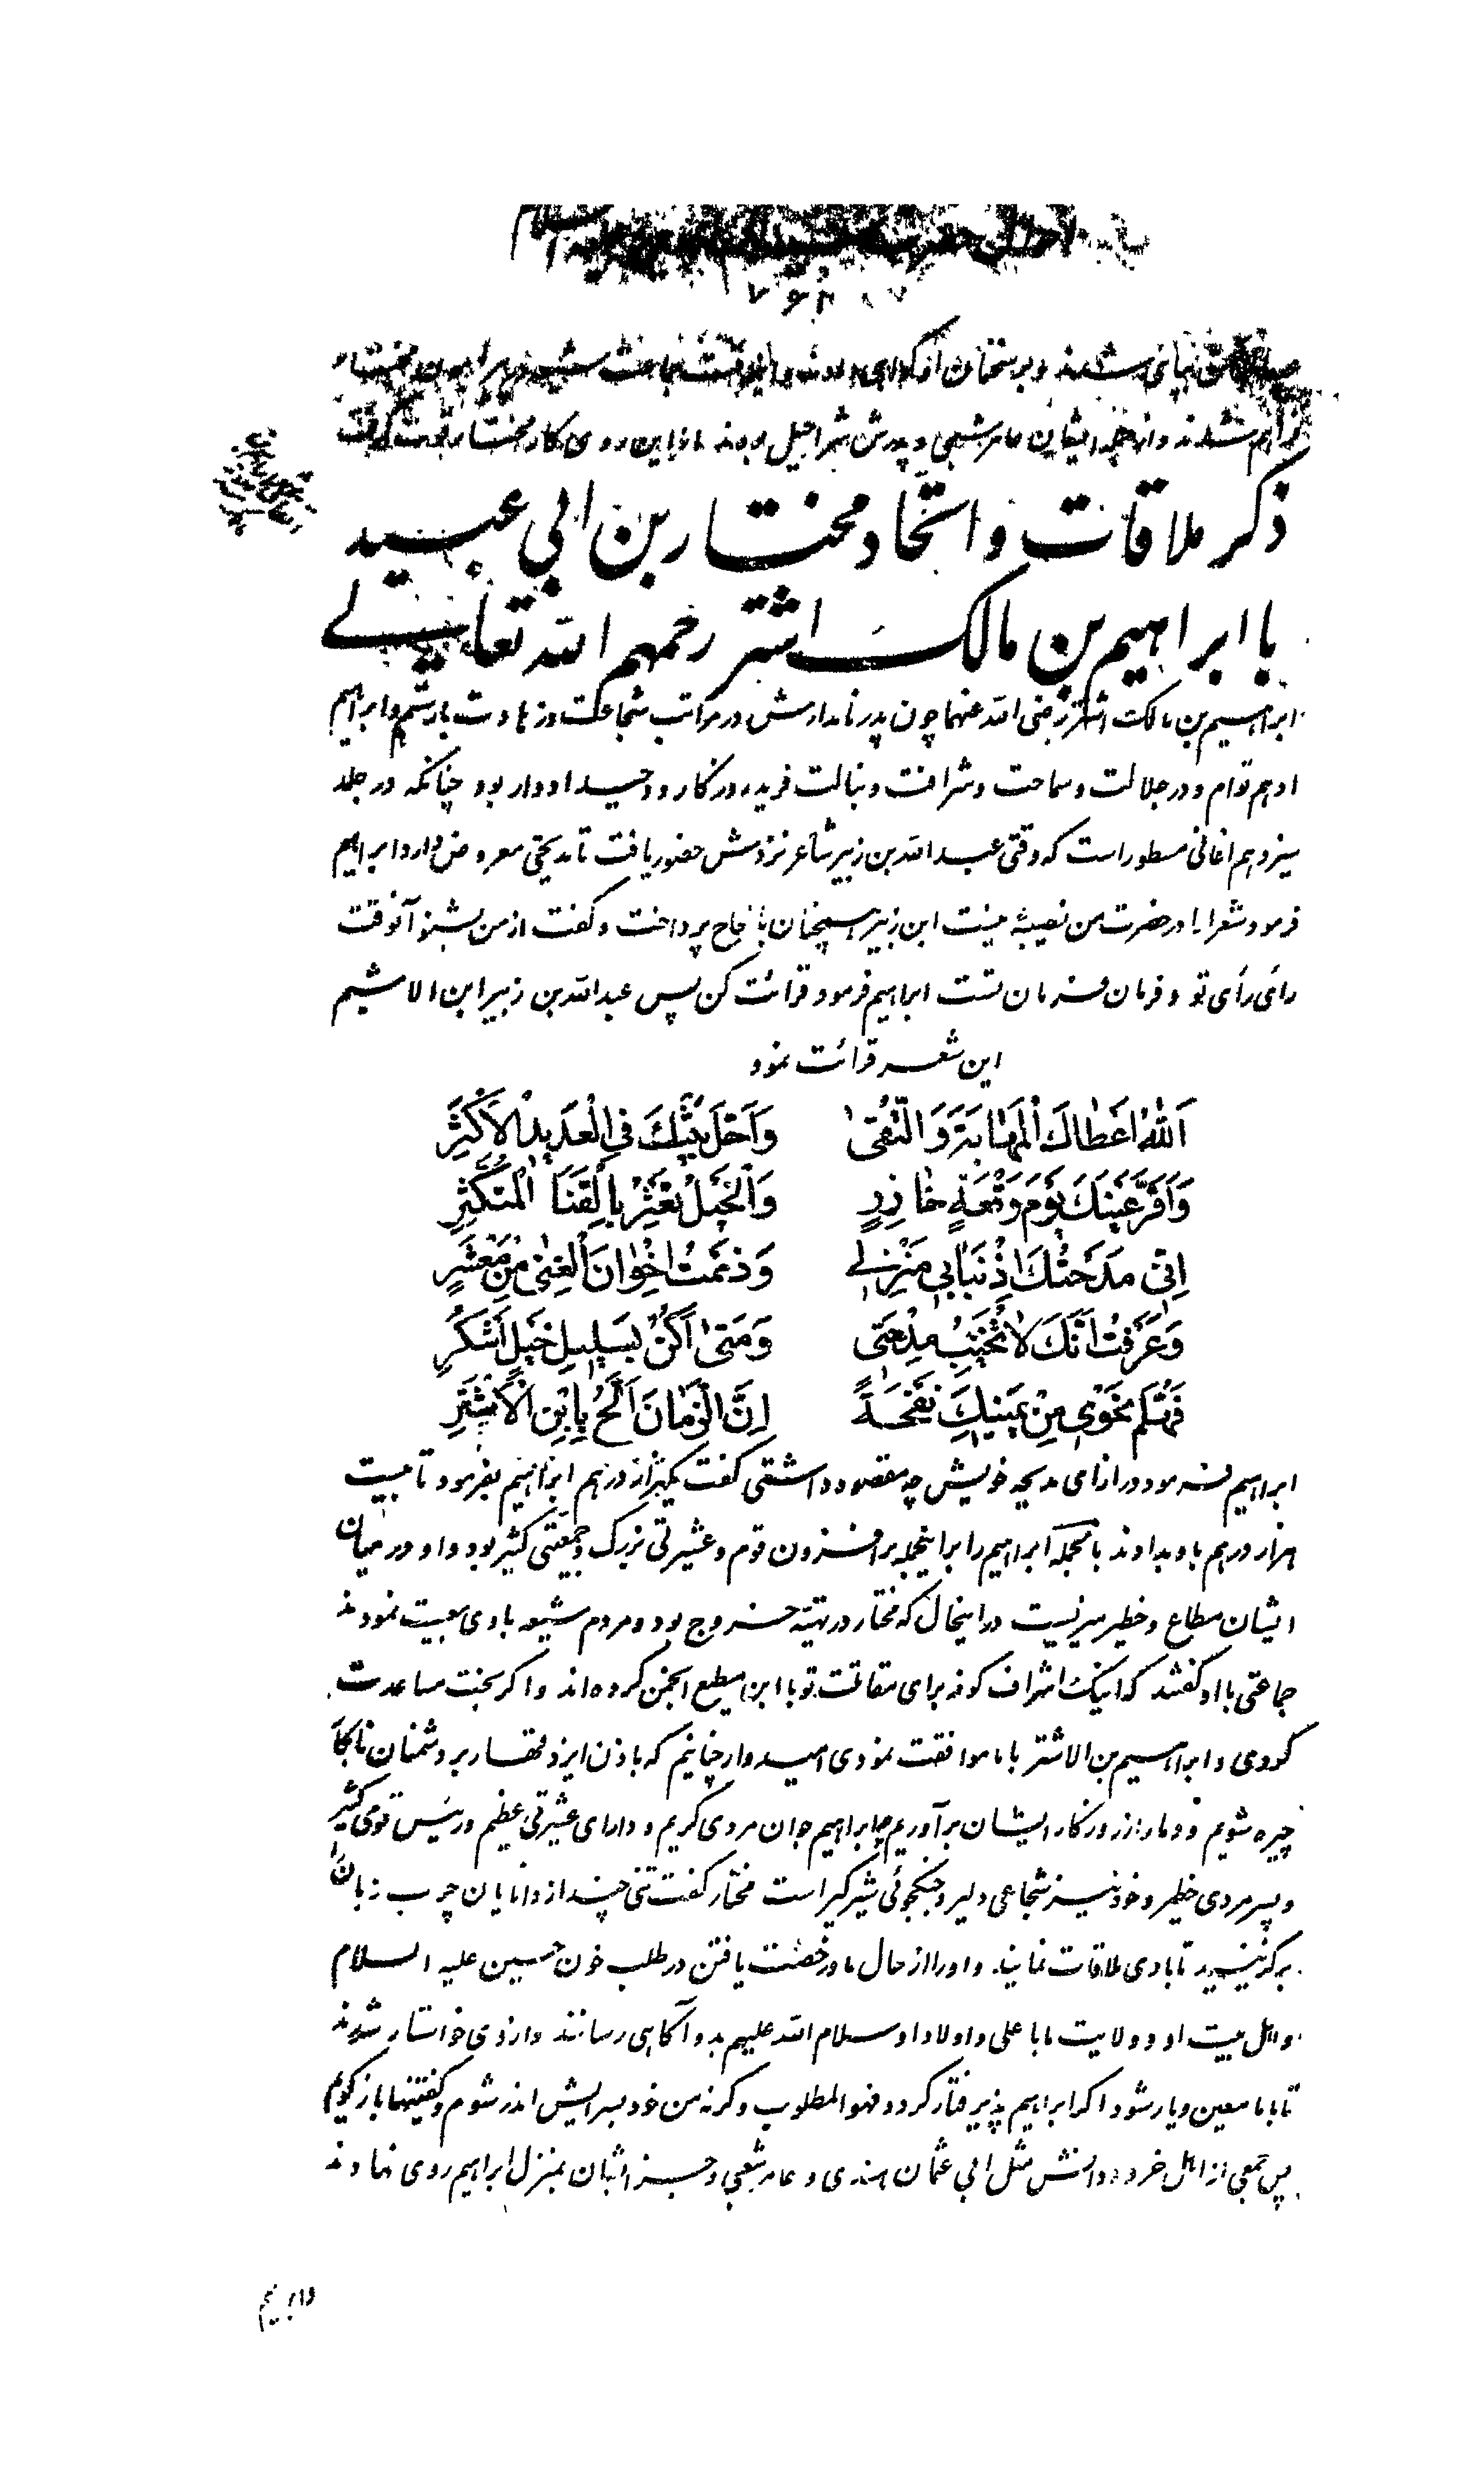 احوال حضرت
شدند و بر سخنان
فراهم شدند و از جمله ایشان عامر شعبی و پدرش شراحیل بودند و از این روی کار مختار قوت گرفت
ذکر ملاقات و اتحاد مختار بن ابی عبید
با ابراهیم بن مالک اشتر رحمهم الله تعالی
ابراهیم بن مالک اشتر رضی الله عنهما چون پدر نامدارش در مراتب شجاعت و زهادت با رستم و ابراهیم
ادهم توام و در جلالت و سماحت و شرافت و نبالت فرید روزگار و وحید ادوار بود چنانکه در جلد
سیزدهم اغانی مسطور است که وقتی عبدالله بن زبیر شاعر نزدش حضور یافت تا مدیحتی معروض دارد ابراهیم
فرمود شعرا را در حضرت من نصیبه نیست ابن زبیر همچنان با نجاح پرداخت و گفت از من بشنو آنوقت
رأی رأی تو و فرمان فرمان تست ابراهیم فرمود قرائت کن پس عبدالله بن زبیر ابن الاشیم
این شعر قرائت نمود
اَللهُ اَعْطاكَ الْمَهابَةَ وَ التُّقیٰ وَ اَحَلَّ بَیْتَكَ فِی الْعَدیدِ الْاَكْثَرِ
وَ اَقَرَّ عَیْنَكَ یَوْمَ وَقْعَةِ خازِرٍ وَ الْخَیْلُ تَعْثُرُ بِالْقَنَا الْمُتَكَسِّرِ
اِنّی مَدَحْتُكَ اِذْ نَبابی مَنْزِلی وَ ذَمَمْتُ اِخْوانَ الْغِنیٰ مِنْ مَعْشَرٍ
وَ عَرَفْتُ اَنَّكَ لاٰ تُخَیِّبُ مِدْحَتی وَ مَتیٰ اَكُنْ بِسَبیلِ خَیْرٍ اَشْكُرِ
فَهَلُمَّ نَحْوی مِنْ یَمینِكَ نَفْحَةً اِنَّ الزَّمانَ اَلَحَّ یَا بْنَ الْاَشْتَرِ
ابراهیم فرمود در ازای مدیحه خویش چه مقصود داشتی گفت یکهزار درهم ابراهیم بفرمود تا بیست
هزار درهم باو بدادند بالجمله ابراهیم را بر اینجمله بر افزون قوم و عشیرتی بزرگ و جمعیتی کثیر بود و او در میان
ایشان مطاع و خطیر میزیست در اینحال که مختار در تهیّه خروج بود و مردم شیعه با وی بیعت نمودند
جماعتی با او گفتند که اینک اشراف کوفه برای مقاتلت تو با ابن مطیع انجمن کرده اند و اگر بخت مساعدت
کردی و ابراهیم بن الاشتر با ما موافقت نمودی امیدوار چنانیم که باذن ایزد قهار بر دشمنان نابکار
چیره شویم و دمار از روزگار ایشان برآوریم چه ابراهیم جوان مردی کریم و دارای عشیرتی عظیم و رئیس قومی کثیر
و پسر مردی خطیر و خود نیز شجاعی دلیر و جنگجوئی شیرگیر است مختار گفت تنی چند از دانایان چرب زبان را
برگزینید تا با وی ملاقات نمایند و او را از حال ما و رخصت یافتن در طلب خون حسین علیه السلام
و اهل بیت او و ولایت ما با علی و اولاد او سلام الله علیهم بدو آگاهی رسانند و از وی خواستار شوند
تا با ما معین و یار شود اگر ابراهیم پذیرفتار گردد فهو المطلوب و گرنه من خود بسرایش اندر شوم و گفتنیها باز گویم
پس جمعی از اهل خرد و دانش مثل ابی عثمان هندی و عامر شعبی و جز ایشان بمنزل ابراهیم روی نهادند
و ابراهیم